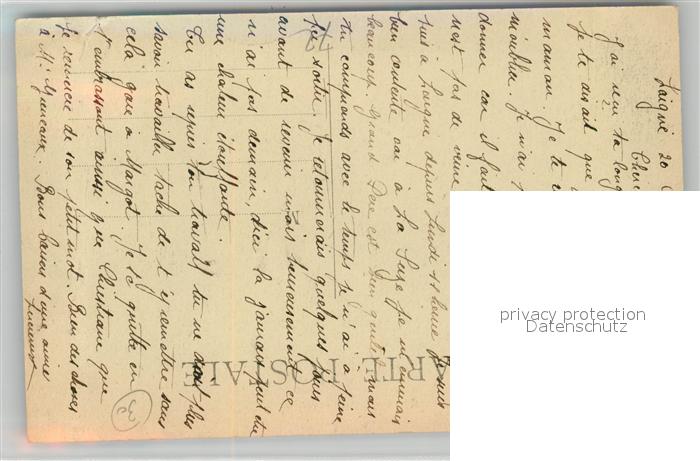 Laigné 20
Cher
J'ai reçu ta long
Je te disait que
maman. Je te
meubler. Je n'ai
donner car il faut
n'est pas de veine
suis à Laigné depuis Lundi 11 heure Je suis
ben contente car à La Suze je m'ennuie
beaucoup. Grand Père est bien gentil mais
tu comprends avec le temps je n'ai à peine
pu sortir. Je retournerais quelques jours
avant de revenir mais heureusement ce
n'ai pas demain, d'ici la j'aurais peut être
une chaleur étouffante.
Tu as repris ton travail tu ne dois plus
savoir travailler tache de t'y remettre sans
cela gare à Margot. Je te quitte en
t'embrassant ainsi que Christiane que
je remercie de son petit mot. Bien des choses
à Mr Bons baisers d'une amie
CARTE POSTALE
privacy protection
Datenschutz